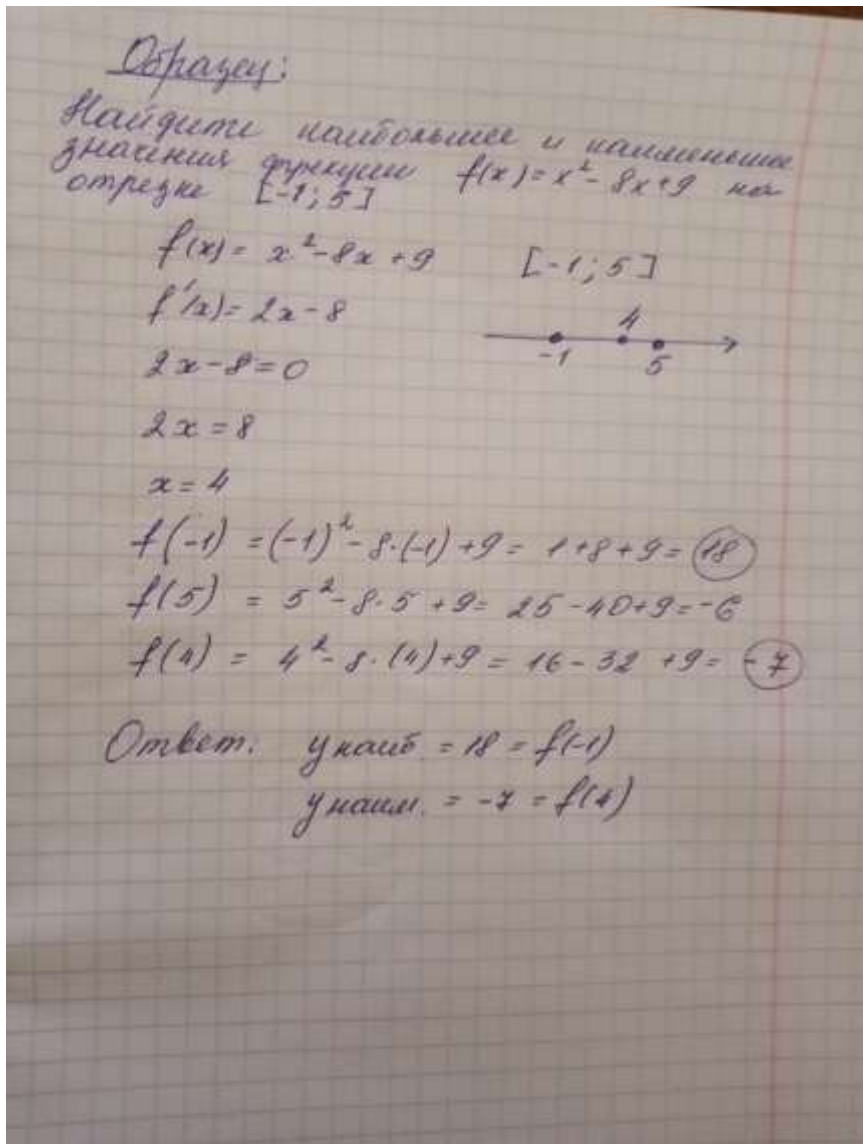 Образец:
Найдите наибольшее и наименьшее
значения функции f(x) = x² - 8x + 9 на
отрезке [-1; 5]
f(x) = x² - 8x + 9 [-1; 5]
f'(x) = 2x - 8
4
-1 5
2x - 8 = 0
2x = 8
x = 4
f(-1) = (-1)² - 8·(-1) + 9 = 1 + 8 + 9 = 18
f(5) = 5² - 8·5 + 9 = 25 - 40 + 9 = -6
f(4) = 4² - 8·(4) + 9 = 16 - 32 + 9 = -7
Ответ: y наиб. = 18 = f(-1)
y наим. = -7 = f(4)